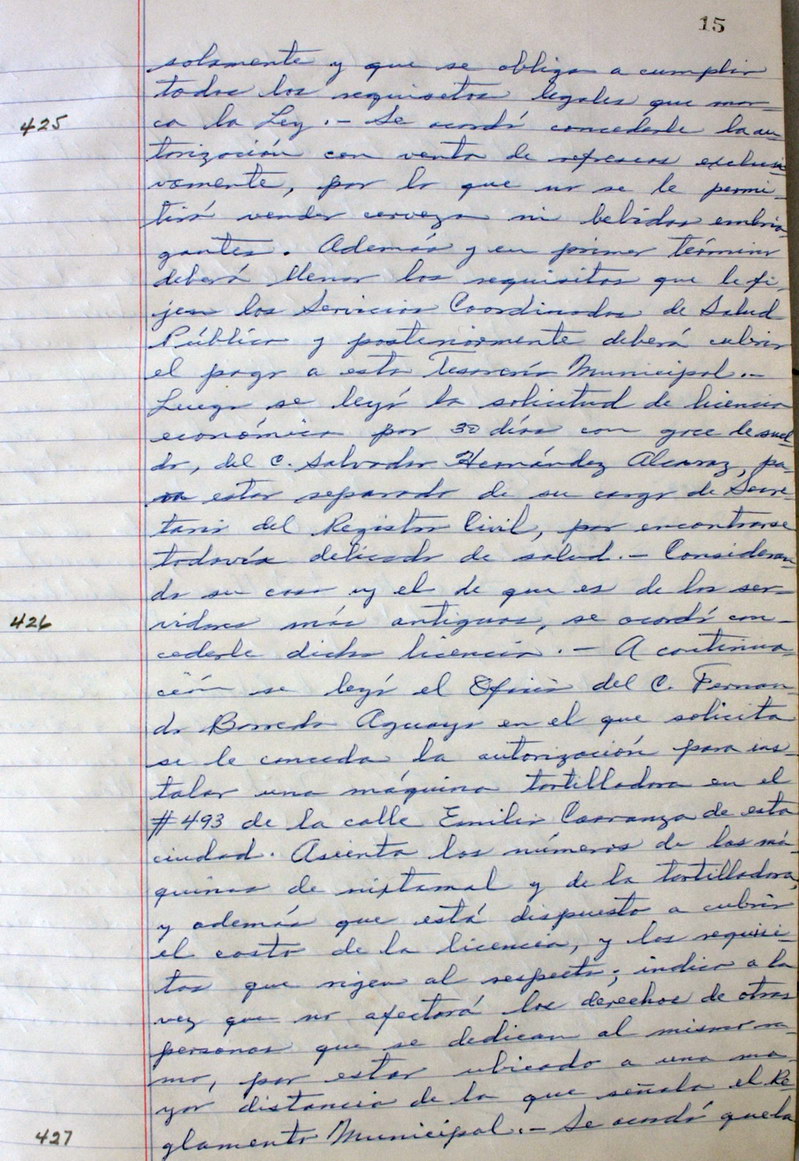 15
solamente y que se obliga a cumplir
todos los requisitos legales que mar-
425
ca la Ley.- Se acordó concederle la au
torización con venta de refrescos exclusi
vamente, por lo que no se le permi-
tirá vender cerveza ni bebidas embria-
gantes. Además y en primer término
deberá llenar los requisitos que le fi-
jen los Servicios Coordinados de Salud
Pública y posteriormente deberá cubrir
el pago a esta Tesorería Municipal.-
Luego se leyó la solicitud de licencia
económica por 30 días con goce de suel
do, del C. Salvador Hernández Alcaraz, pa-
ra estar separado de su cargo de Secre
tario del Registro Civil, por encontrarse
todavía delicado de salud.- Consideran
do su caso y el de que es de los ser-
426
vidores más antiguos, se acordó con-
cederle dicha licencia.- A continua
ción se leyó el Oficio del C. Fernan-
do Borredo Aguayo en el que solicita
se le conceda la autorización para ins-
talar una máquina tortilladora en el
#493 de la calle Emilio Carranza de esta
ciudad. Asienta los números de las má-
quinas de nixtamal y de la tortilladora,
y además que está dispuesto a cubrir
el costo de la licencia, y los requisi-
tos que rigen al respecto; indica a la
vez que no afectará los derechos de otras
personas que se dedican al mismo ra-
mo, por estar ubicado a una ma-
yor distancia de la que señala el Re-
427
glamento Municipal.- Se acordó que la